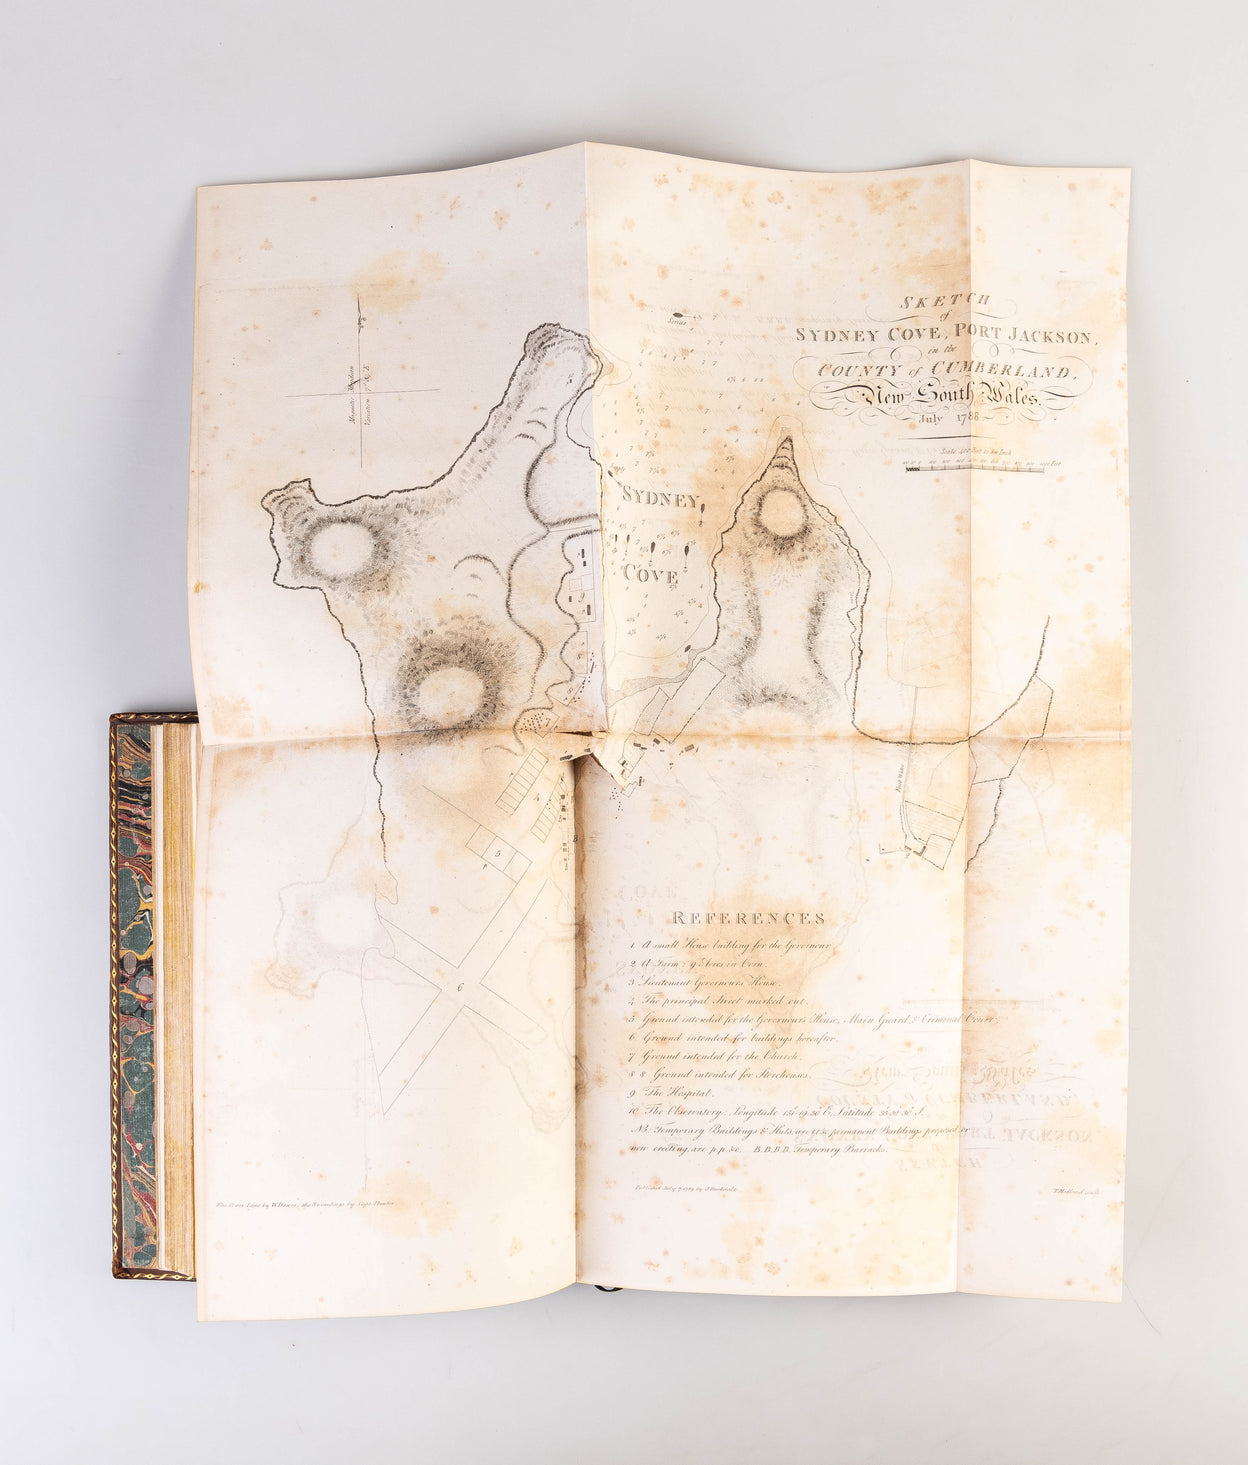 SKETCH
of
SYDNEY COVE, PORT JACKSON,
in the
COUNTY of CUMBERLAND,
New South Wales.
July 1788
Scale 400 Feet to an Inch
Sirius
Magnetic Meridian
Variation
SYDNEY
COVE
REFERENCES
1 A small House building for the Governour
2 A Farm 9 Acres in Corn
3 Lieutenant Governours House.
4 The principal Street marked out.
5 Ground intended for the Governour's House, Main Guard, & Criminal Court.
6 Ground intended for buildings hereafter.
7 Ground intended for the Church.
8 8 Ground intended for Storehouses.
9 The Hospital.
10 The Observatory: Longitude E. Latitude S.
NB: Temporary Buildings & Huts, are permanent Buildings proposed or
now erecting, are p. p. &c. B.B.B.B. Temporary Barracks.
Published July 7, 1789 by J. Stockdale
The Coast Line by W. Dawes, the Soundings by Capt. Hunter
T. Medland sculp.